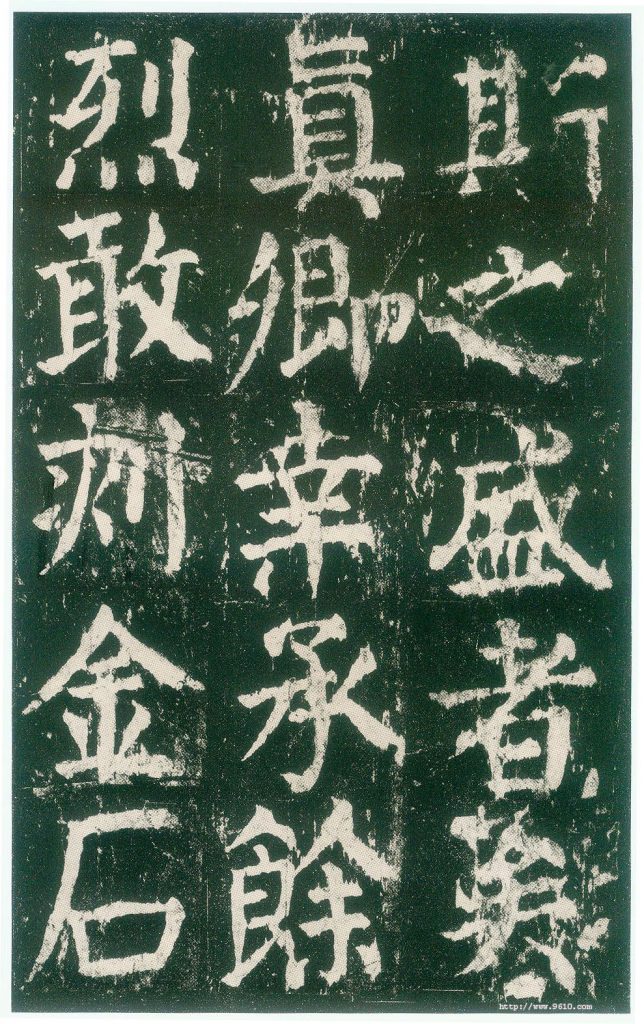 斯之盛者
眞卿幸承餘
烈敢刻金石
http://www.9610.com